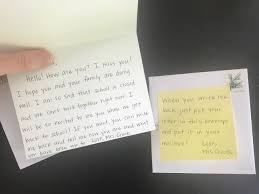 Hello! How are you? I miss you!
I hope you and your family are doing
well. I am so sad that school is closed
and we can't be together right now. I
will be so excited to see you when we get
back to school! If you want, you can write
me back and tell me how you are and what
you have been up to. Love, Mrs.
When you write me
back, just put your
letter in this envelope
and put it in your
mailbox!
Love,
Mrs.